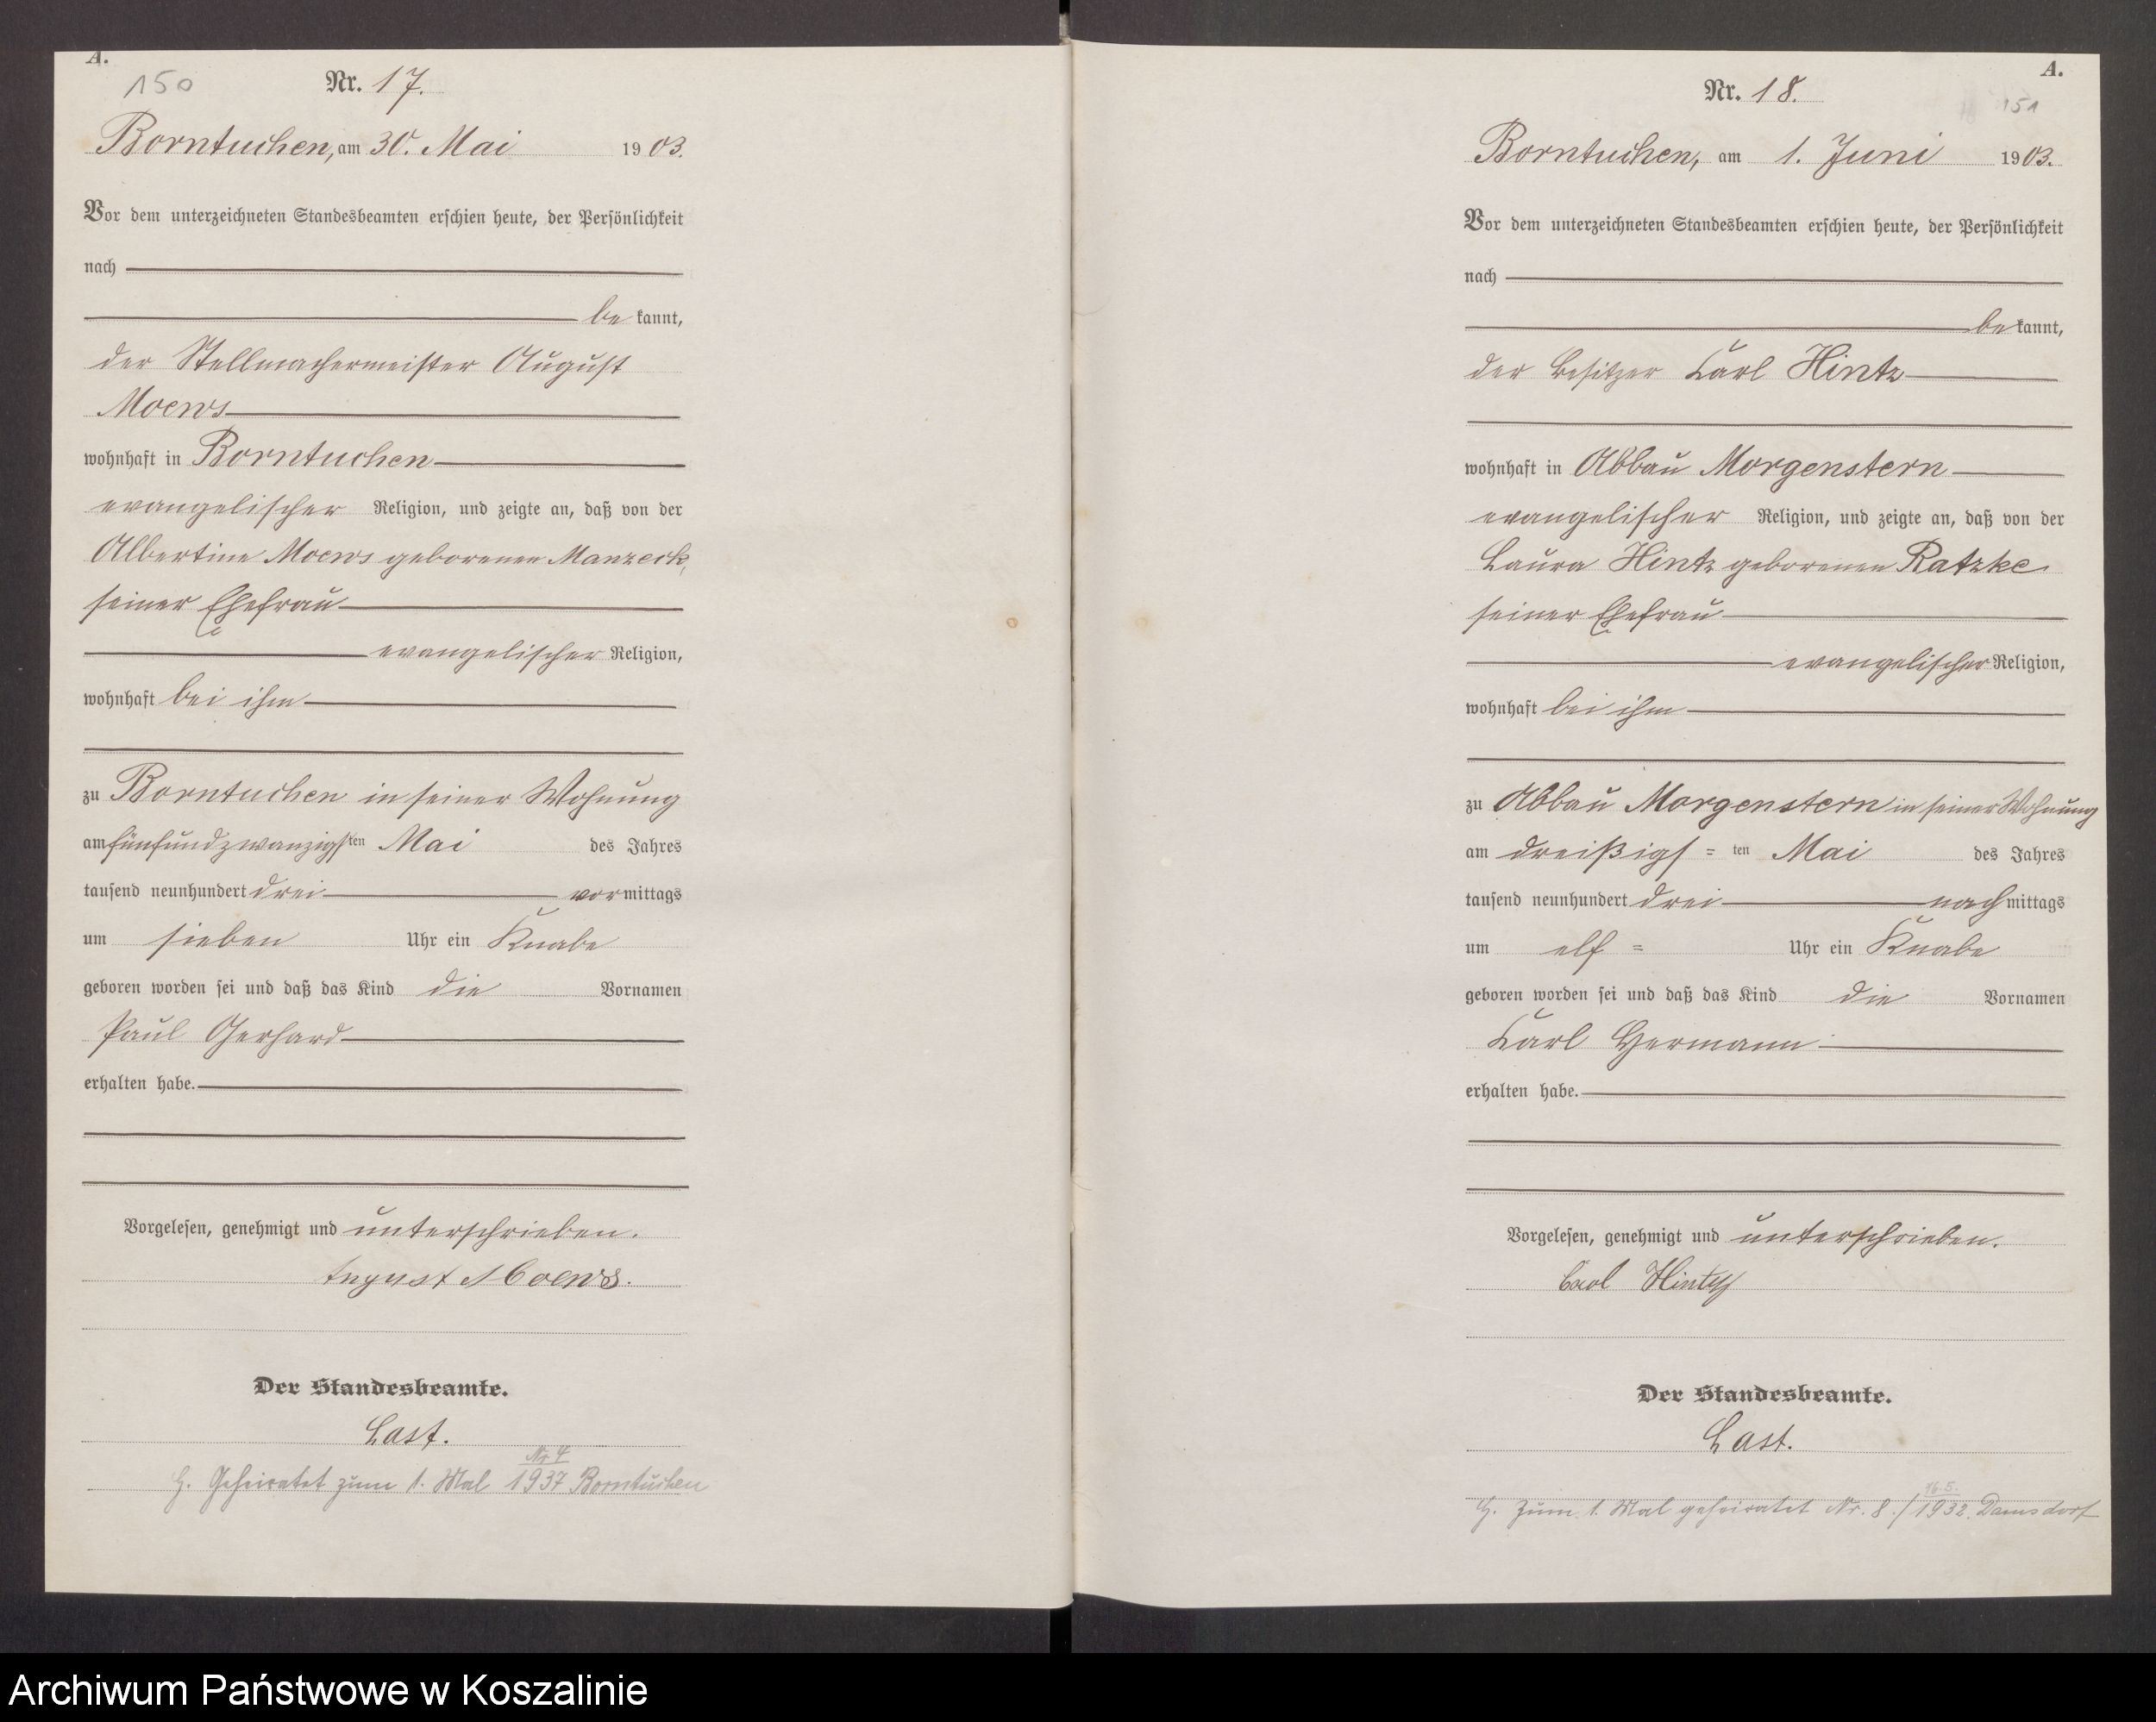 A.
150
Nr. 17.
Borntuchen, am 30. Mai 1903.
Vor dem unterzeichneten Standesbeamten erschien heute, der Persönlichkeit
nach
be kannt,
der Stellmachermeister August
Moews
wohnhaft in Borntuchen
evangelischer Religion, und zeigte an, daß von der
Albertine Moews geborenen Manzeck,
seiner Ehefrau
evangelischer Religion,
wohnhaft bei ihm
zu Borntuchen in seiner Wohnung
am fünfundzwanzigsten Mai des Jahres
tausend neunhundert drei vormittags
um sieben Uhr ein Knabe
geboren worden sei und daß das Kind die Vornamen
Paul Gerhard
erhalten habe.
Vorgelesen, genehmigt und unterschrieben.
August Moews.
Der Standesbeamte.
Last.
Nr 4
H. Geheiratet zum 1. Mal 1937 Borntuchen
A.
Nr. 18.
151
Borntuchen, am 1. Juni 1903.
Vor dem unterzeichneten Standesbeamten erschien heute, der Persönlichkeit
nach
be kannt,
der Besitzer Carl Hintz
wohnhaft in Abbau Morgenstern
evangelischer Religion, und zeigte an, daß von der
Laura Hintz geborenen Ratzke
seiner Ehefrau
evangelischer Religion,
wohnhaft bei ihm
zu Abbau Morgenstern in seiner Wohnung
am dreißigs=ten Mai des Jahres
tausend neunhundert drei nachmittags
um elf = Uhr ein Knabe
geboren worden sei und daß das Kind die Vornamen
Carl Hermann
erhalten habe.
Vorgelesen, genehmigt und unterschrieben.
Carl Hintz
Der Standesbeamte.
Last.
16.5.
H. Zum 1. Mal geheiratet Nr. 8./1932. Damsdorf
Archiwum Państwowe w Koszalinie